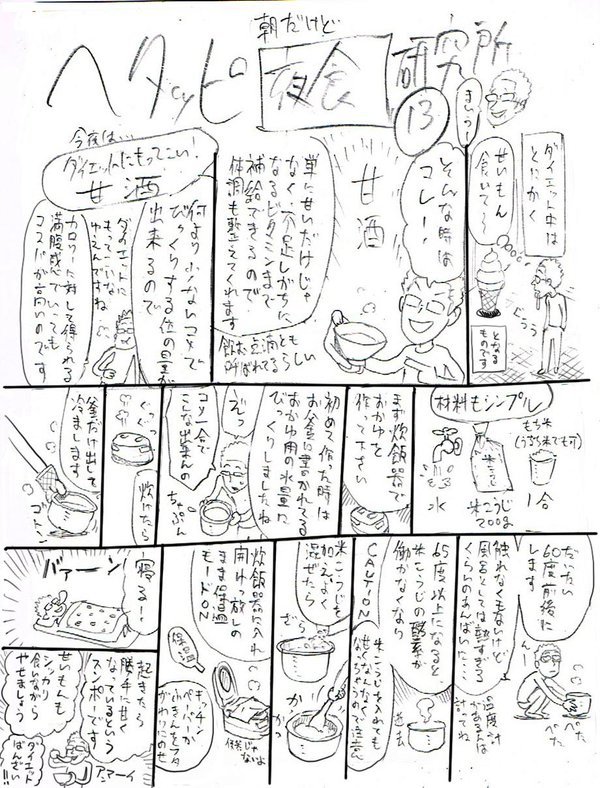 朝だけど
ヘタッピ夜食研究所
13
まいうー!
ダイエット中は
とにかく
せいもん
食いてぇ〜
ぐぅぅ
となる
ものです
そんな時は
コレー!
甘酒
単に甘いだけじゃ
なくい不足しがちに
なるビタミンまで
補給できるので
体調も整えてくれます
飲む点滴とも
呼ばれてるらしい
今夜は…
ダイエットにもってこい!
甘酒
何より少ないコメで
びっくりする位の量が
出来るので
ダイエットに
もってこいな
ゆえんですね
カロリーに対して得られる
満腹感でいっても
コスパが高いのです
材料もシンプル
もち米
(うるち米でも可)
1合
米こうじ
米こうじ
200g
水
まず炊飯器で
おかゆを
作って下さい
初めて作った時は
お釜に書かれてる
おかゆ用の水量に
びっくりしましたね
えっ
コメ一合で
こんな出来んの
ちゃぷん
ぐっぐっ
炊けたら
釜だけ出して
冷まします
ゴトン
だいたい
60度前後に
します
触れなくもないけど
風呂としては熱すぎる
くらいのあんばいに…
んー
温度計
がある人は
計ってね
ぺた
ぺた
65度以上になると
米こうじの酵素が
働かなくなり
CAUTION
米こうじを入れても
甘くなんないので注意ん
過去
米こうじを
加えよく
混ぜたら
ざら
かっ
炊飯器に入れ
開けっ放しの
まま保温
モードON
保温
キッチン
ペーパーか
ふきんをフタ
がわりにのせ
炊きじゃ
ないよ
寝るー!
バァーン
起きたら
勝手に甘く
なっているという
スンポーです
アンマーイ
せいもんも
シッカリ
食いながら
やせましょう
ダイエット
ばんざい!!